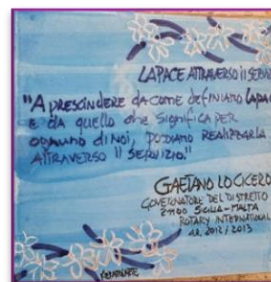 LA PACE ATTRAVERSO il SERVI
"A prescindere da come definiamo la pac
e da quello che significa per
ognuno di noi, possiamo realizzarla
attraverso il servizio."
GAETANO LO CICERO
GOVERNATORE DEL DISTRETTO
2110 SICILIA-MALTA
ROTARY INTERNATIONAL
2012/2013